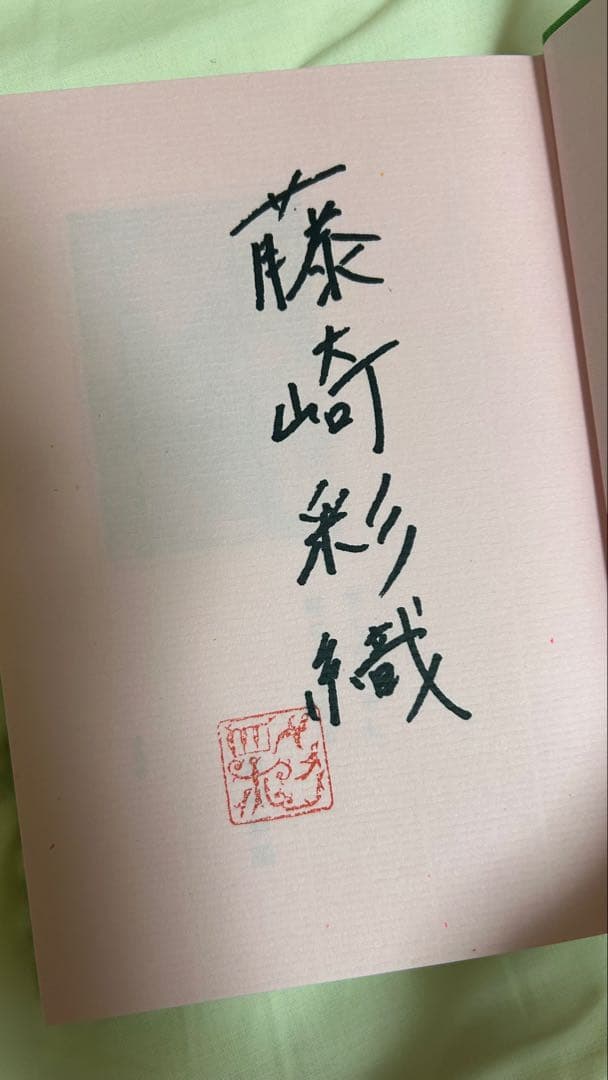 藤崎彩織